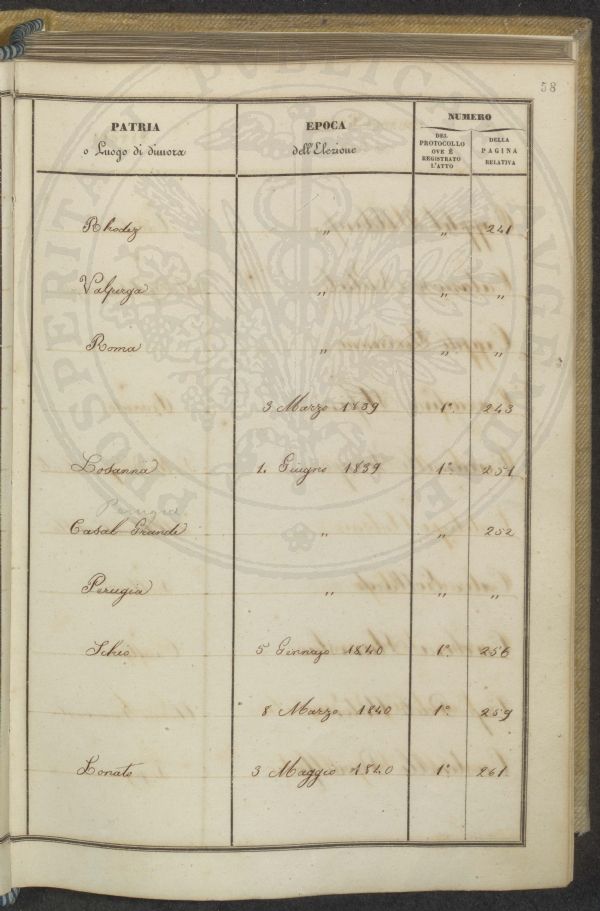 58
PATRIA
o Luogo di dimora
EPOCA
dell'Elezione
NUMERO
DEL
PROTOCOLLO
OVE È
REGISTRATO
L'ATTO
DELLA
PAGINA
RELATIVA
Rhodez " " 241
Valperga " " "
Roma " " "
3 Marzo 1839 1º 243
Losanna 1. Giugno 1839 1º 251
Perugia
Casal Grande " " 252
Perugia " " "
Schio 5 Gennajo 1840 1º 256
8 Marzo 1840 1º 259
Lonato 3 Maggio 1840 1º 261